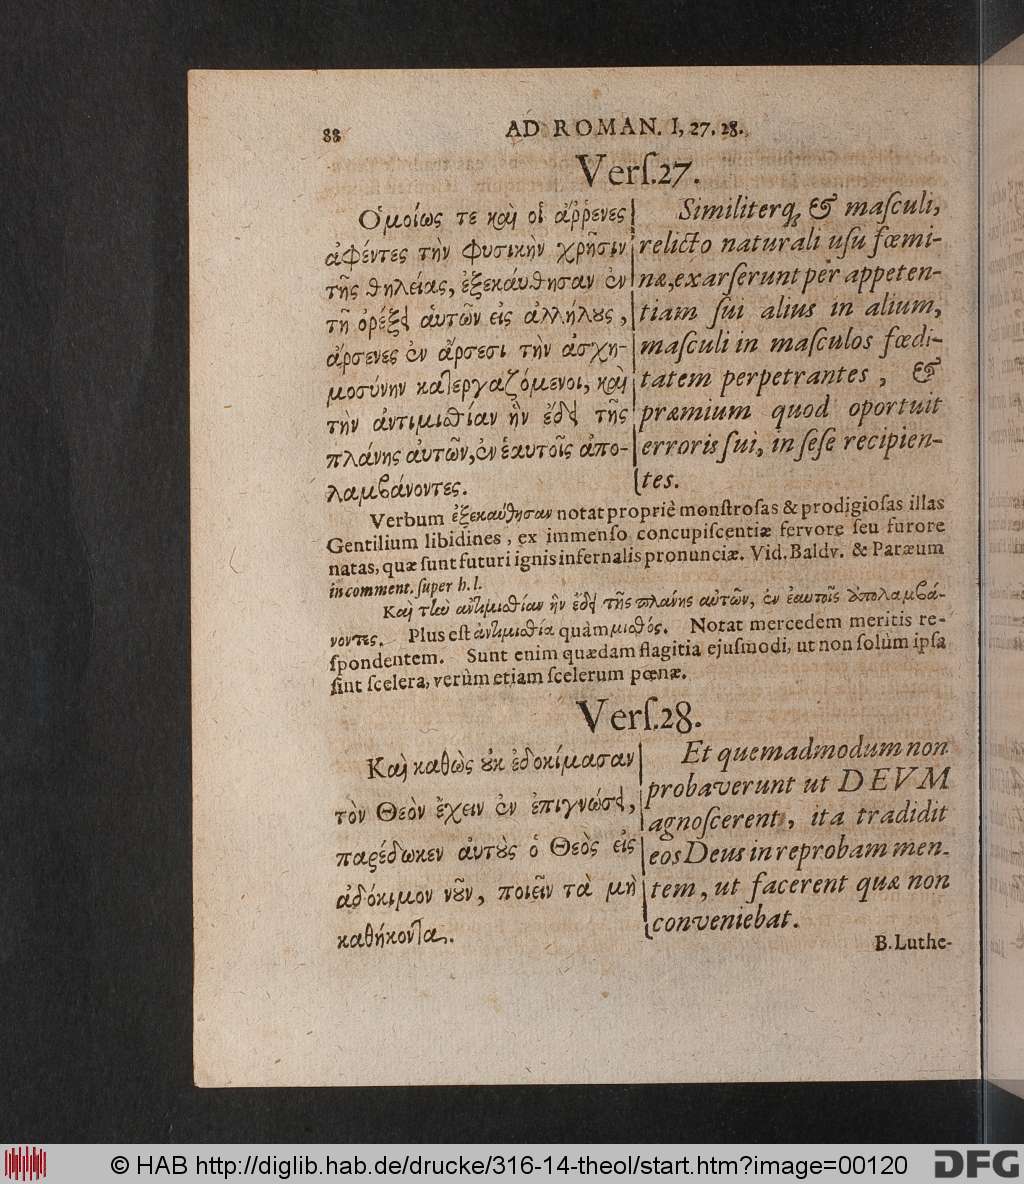 88
AD ROMAN. I, 27. 28.
Verſ.27.
Ὁμοίως τε καὶ οἱ ἄῤῥενες
ἀφέντες τὴν φυσικὴν χρῆσιν
τῆς θηλείας, ἐξεκάυθησαν ἐν
τῇ ὀρέξει ἁυτῶν εἰς ἀλλήλους,
ἄρσενες ἐν ἄρσεσι τὴν ἀσχη-
μοσύνην κατεργαζόμενοι, καὶ
τὴν ἀντιμισθίαν ἣν ἔδει τῆς
πλάνης ἁυτῶν, ἐν ἑαυτοῖς ἀπο-
λαμβάνοντες.
Similiterq; & maſculi,
relicto naturali uſu fœmi-
næ, exarſerunt per appeten-
tiam ſui alius in alium,
maſculi in maſculos fœdi-
tatem perpetrantes, &
præmium quod oportuit
erroris ſui, in ſeſe recipien-
tes.
Verbum ἐξεκαύθησαν notat propriè monſtroſas & prodigioſas illas
Gentilium libidines, ex immenſo concupiſcentiæ fervore ſeu furore
natas, quæ ſunt futuri ignis infernalis pronunciæ. Vid. Baldv. & Paræum
in comment. ſuper h. l.
Καὶ τὴν ἀντιμισθίαν ἣν ἔδει τῆς πλάνης αὐτῶν, ἐν ἑαυτοῖς ἀπολαμβά-
νοντες. Plus eſt ἀντιμισθία quàm μισθός. Notat mercedem meritis re-
ſpondentem. Sunt enim quædam flagitia ejuſmodi, ut non ſolùm ipſa
ſint ſcelera, verùm etiam ſcelerum pœnæ.
Verſ.28.
Καὶ καθὼς οὐκ ἐδοκίμασαν
τὸν Θεὸν ἔχειν ἐν ἐπιγνώσει,
παρέδωκεν ἀυτοὺς ὁ Θεὸς εἰς
ἀδόκιμον νοῦν, ποιεῖν τὰ μὴ
καθήκοντα.
Et quemadmodum non
probaverunt ut DEVM
agnoſcerent, ita tradidit
eos Deus in reprobam men-
tem, ut facerent quæ non
conveniebat.
B. Luthe-
© HAB http://diglib.hab.de/drucke/316-14-theol/start.htm?image=00120
DFG